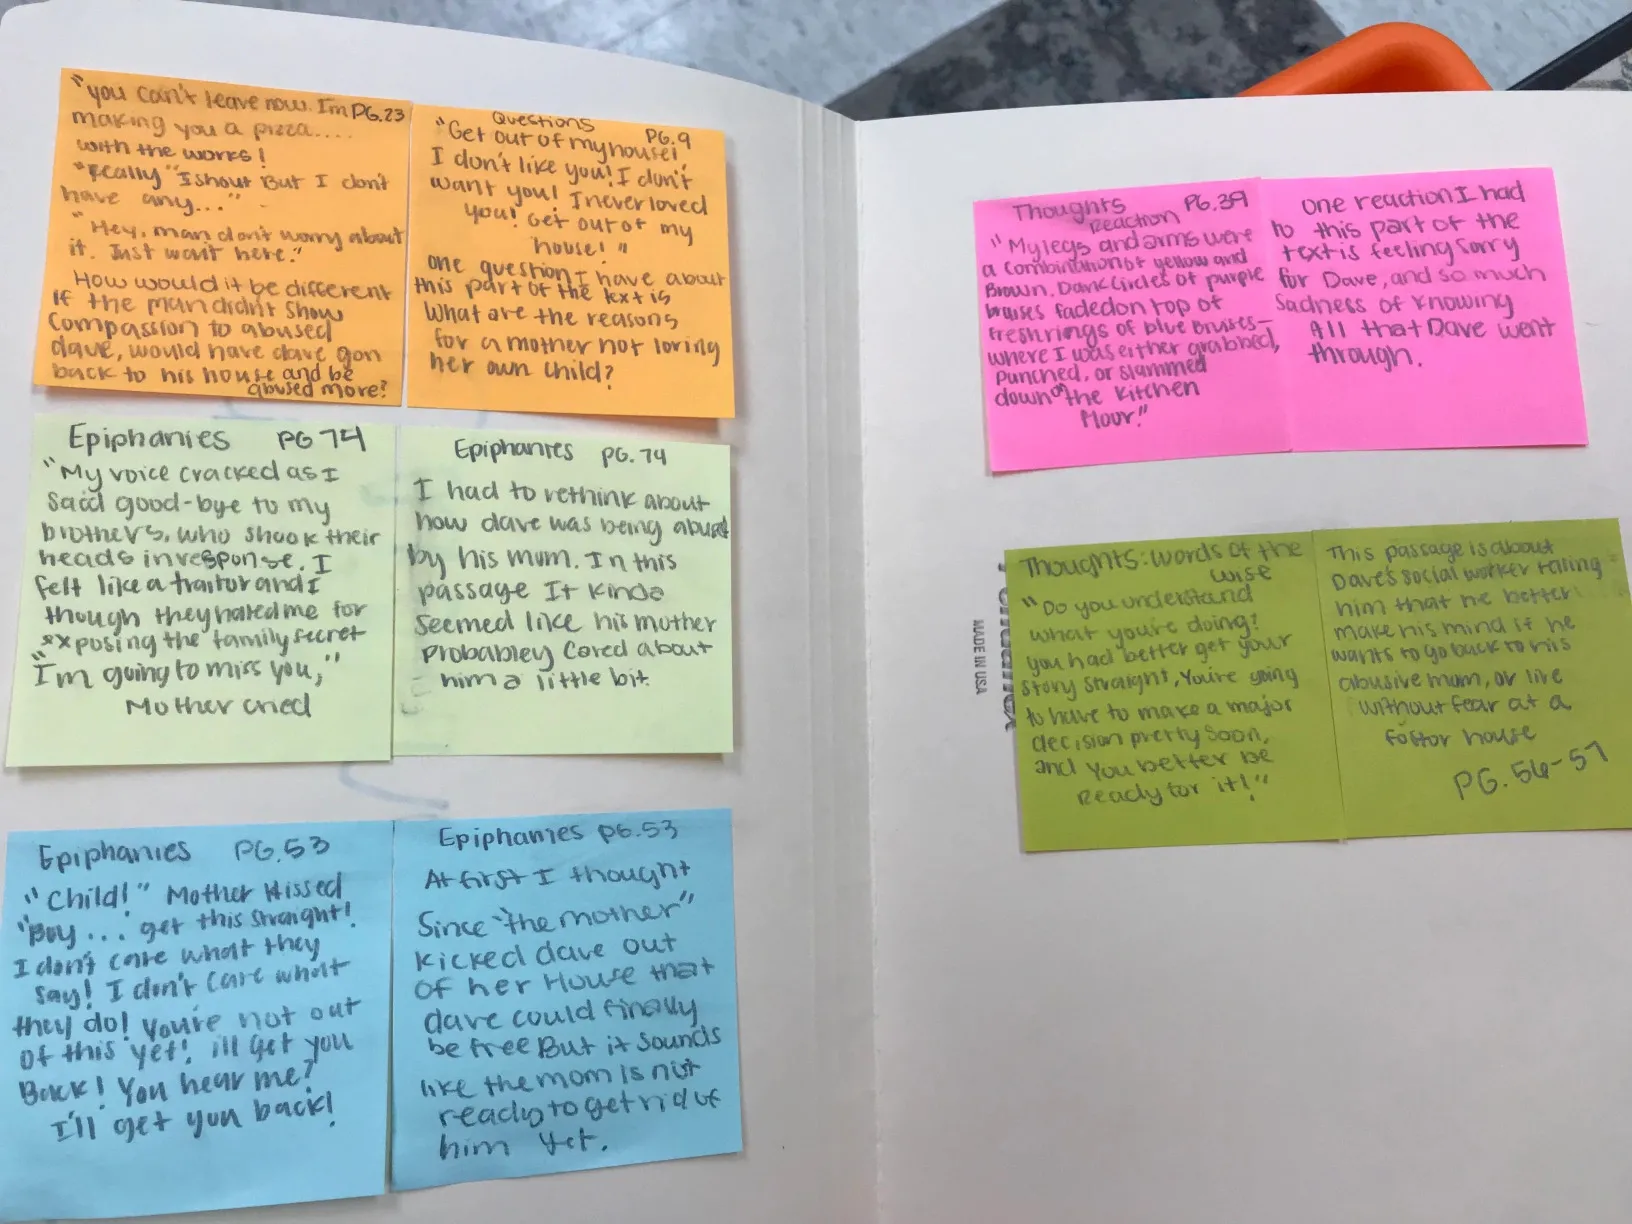 "you can't leave now. I'm PG.23
making you a pizza....
with the works!
"Really" I shout But I don't
have any..."
"Hey, man don't worry about
it. Just wait here."
How would it be different
If the man didn't show
Compassion to abused
dave, would have dave gon
back to his house and be
abused more?
Questions
PG.9
"Get out of my house!
I don't like you! I don't
want you! I never loved
you! Get out of my
house!"
one question I have about
this part of the text is
What are the reasons
for a mother not loving
her own child?
Epiphanies PG 74
"My voice cracked as I
said good-bye to my
brothers, who shook their
heads in response. I
felt like a traitor and I
though they hated me for
exposing the family secret
"I'm going to miss you,"
Mother cried
Epiphanies PG.74
I had to rethink about
how dave was being abused
by his mum. In this
passage It kinda
seemed like his mother
Probabley cared about
him a little bit.
Epiphanies PG.53
"Child!" Mother Hissed
"Boy...' get this straight!
I don't care what they
say! I don't care what
they do! You're not out
of this yet! ill get you
Back! You hear me?
I'll get you back!
Epiphanies PG.53
At first I thought
Since "the mother"
kicked dave out
of her House that
dave could finally
be free But it sounds
like the mom is not
ready to get rid of
him yet.
Thoughts PG.39
Reaction
"My legs and arms were
a combination of yellow and
Brown. Dark Circles of purple
bruises faded on top of
fresh rings of blue Bruises—
where I was either grabbed,
punched, or slammed
down on the Kitchen
Floor."
One reaction I had
to this part of the
text is feeling sorry
for Dave, and so much
Sadness of knowing
All that Dave went
through.
Thoughts: words of the
wise
"Do you understand
what you're doing?
you had better get your
story straight, You're going
to have to make a major
decision pretty soon,
and you better be
Ready for it!"
This passage is about
Dave's social worker
him that he better
make his mind if he
wants to go back to his
abusive mum, or live
without fear at a
fostor house
PG. 56-57
MADE IN USA